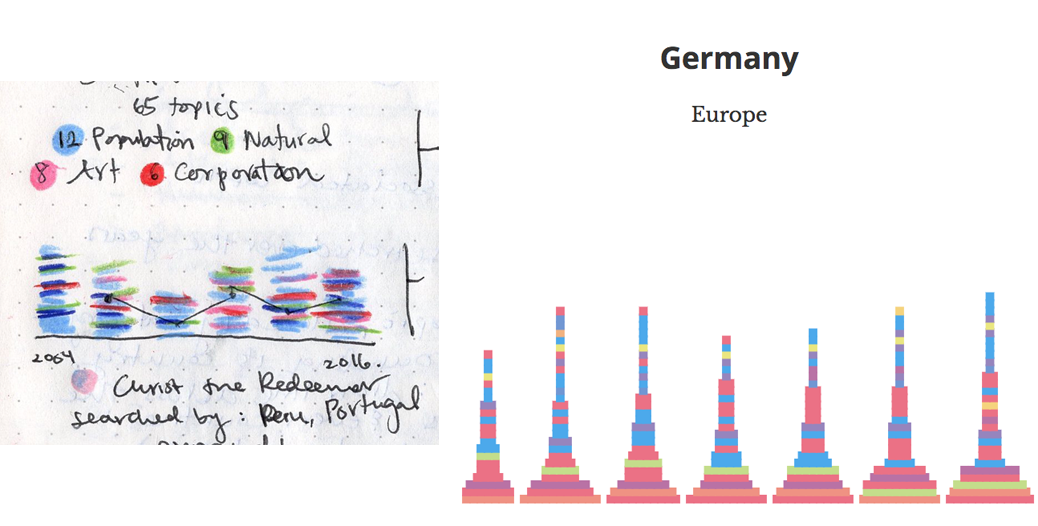 65 topics
12 Population 9 Natural
8 Art 6 Corporation
2004 2016.
Christ the Redeemer
searched by: Peru, Portugal
Germany
Europe